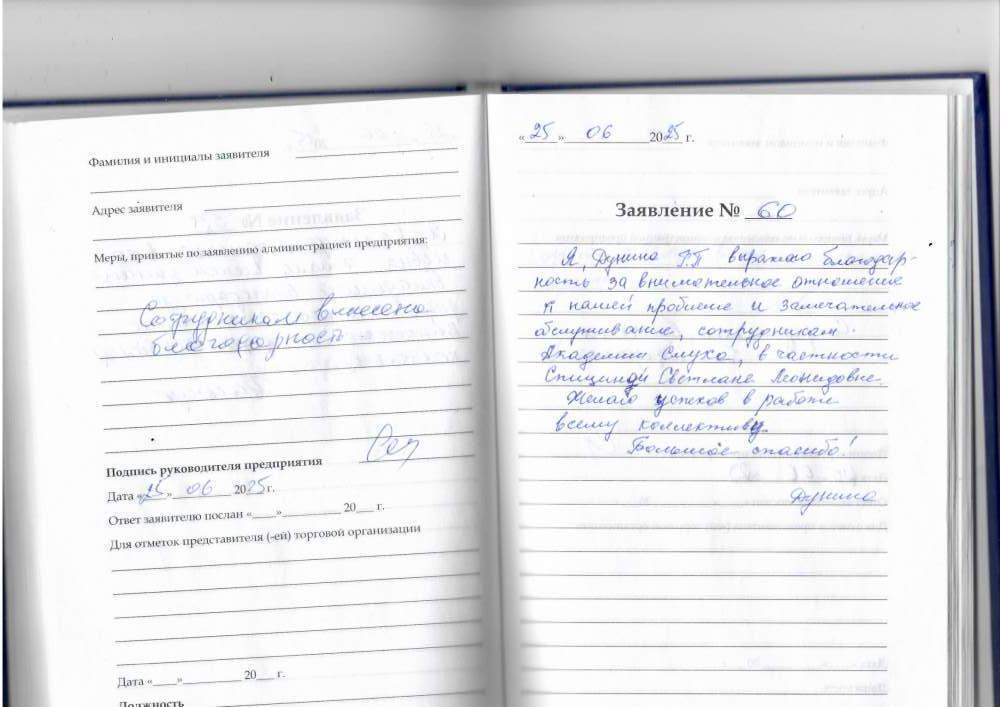 Фамилия и инициалы заявителя
Адрес заявителя
Меры, принятые по заявлению администрацией предприятия:
Сотрудникам вынесена
благодарность
Подпись руководителя предприятия
Дата «25» 06 2025 г.
Ответ заявителю послан «___» ________ 20___ г.
Для отметок представителя (-ей) торговой организации
Дата «___» ________ 20___ г.
Должность
«25» 06 2025 г.
Заявление № 60
Я, Дунина Г.П выражаю благодар-
ность за внимательное отношение
к нашей проблеме и замечательное
обслуживание, сотрудникам
Академии Слуха, в частности
Спициной Светлане Леонидовне.
Желаю успехов в работе
всему коллективу.
Большое спасибо!
Дунина